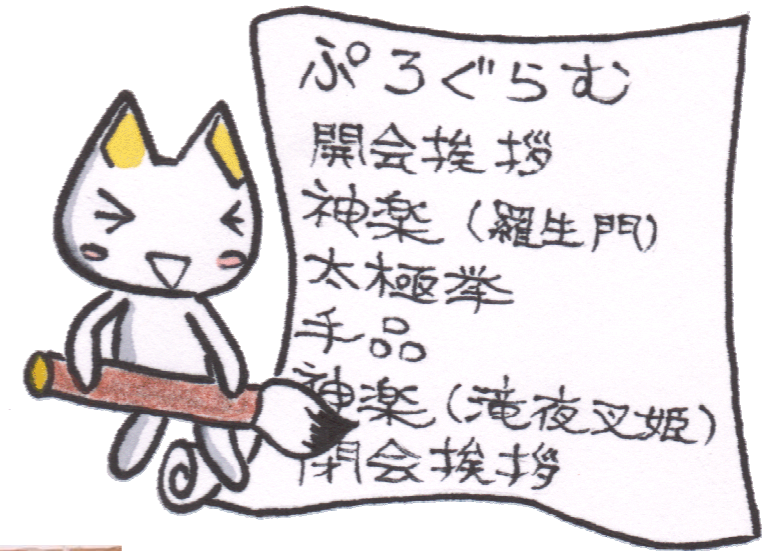 ぷろぐらむ
開会挨拶
神楽（羅生門）
太極拳
手品
神楽（滝夜叉姫）
閉会挨拶